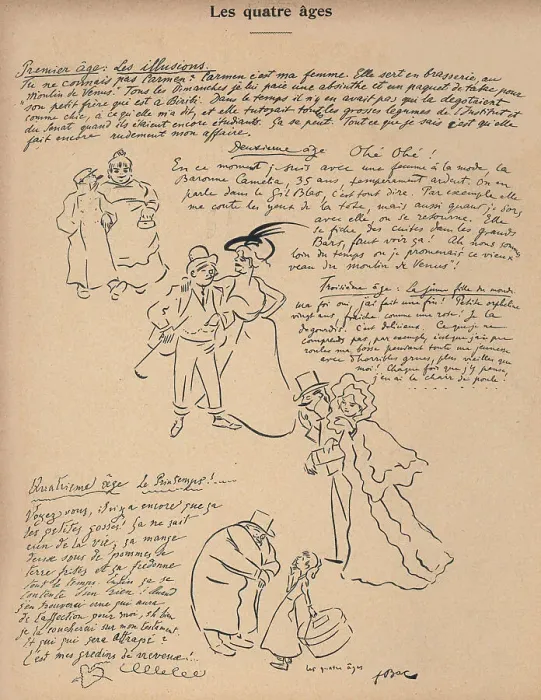 Les quatre âges
Premier âge : Les illusions.
Tu ne connais pas Carmen ? Carmen c'est ma femme. Elle sert en brasserie, au
Moulin de Venus. Tous les Dimanches je lui paie une absinthe et un paquet de tabac pour
son petit frère qui est à Biribi. Dans le temps il n'y en avait pas qui la dégotaient
comme chic, à ce qu'elle m'a dit, et elle tutoyait toutes les grosses légumes de l'Institut et
du Sénat quand ils étaient encore étudiants. Ça se peut. Tout ce que je sais c'est qu'elle
fait encore rudement mon affaire.
Deuxième âge Ohé Ohé !
En ce moment je suis avec une femme à la mode, la
Baronne Camélia, 35 ans, tempérament ardent. On en
parle dans le Gil Blas, c'est tout dire. Par exemple elle
me coûte les yeux de la tête, mais aussi quand je sors
avec elle on se retourne. Elle
se fiche des cuites dans les grands
Bars, faut voir ça ! Ah nous sommes
loin du temps où je promenais ce vieux
veau du moulin de Venus !
Troisième âge : La jeune fille du monde.
Ma foi oui, j'ai fait une fin ! Petite orpheline
vingt ans, fraîche comme une rose ! Je la
dégourdis. C'est délicieux. Ce que je ne
comprends pas, par exemple, c'est que j'ai pu
rouler ma bosse pendant toute ma jeunesse
avec d'horribles grues, plus vieilles que
moi ! Chaque fois que j'y pense,
j'en ai la chair de poule !
Quatrième âge Le Printemps !
Voyez vous, il n'y a encore que ça
les petites gosses ! Ça ne sait
rien de la vie, ça mange
deux sous de pommes de
terre frites et ça fredonne
tout le temps. Enfin ça se
contente d'un rien ! Quand
j'en trouverai une qui aura
de l'affection pour moi, eh bien
je la coucherai sur mon testament.
Et qui qui sera attrapé ?
C'est mes gredins de neveux !...
Les quatre âges
F Bac